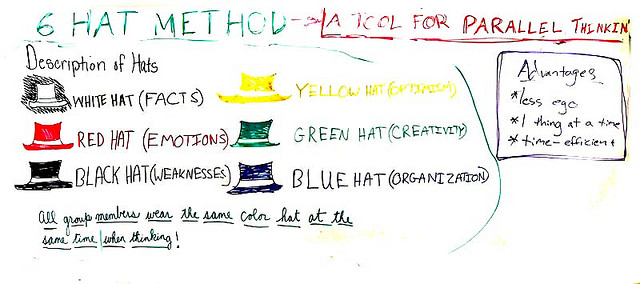 6 HAT METHOD → A TOOL FOR PARALLEL THINKIN
Description of Hats
WHITE HAT (FACTS)
YELLOW HAT (OPTIMISM)
RED HAT (EMOTIONS)
GREEN HAT (CREATIVITY)
BLACK HAT (WEAKNESSES)
BLUE HAT (ORGANIZATION)
All group members wear the same color hat at the
same time when thinking!
Advantages
*less ego
*1 thing at a time
*time-efficient